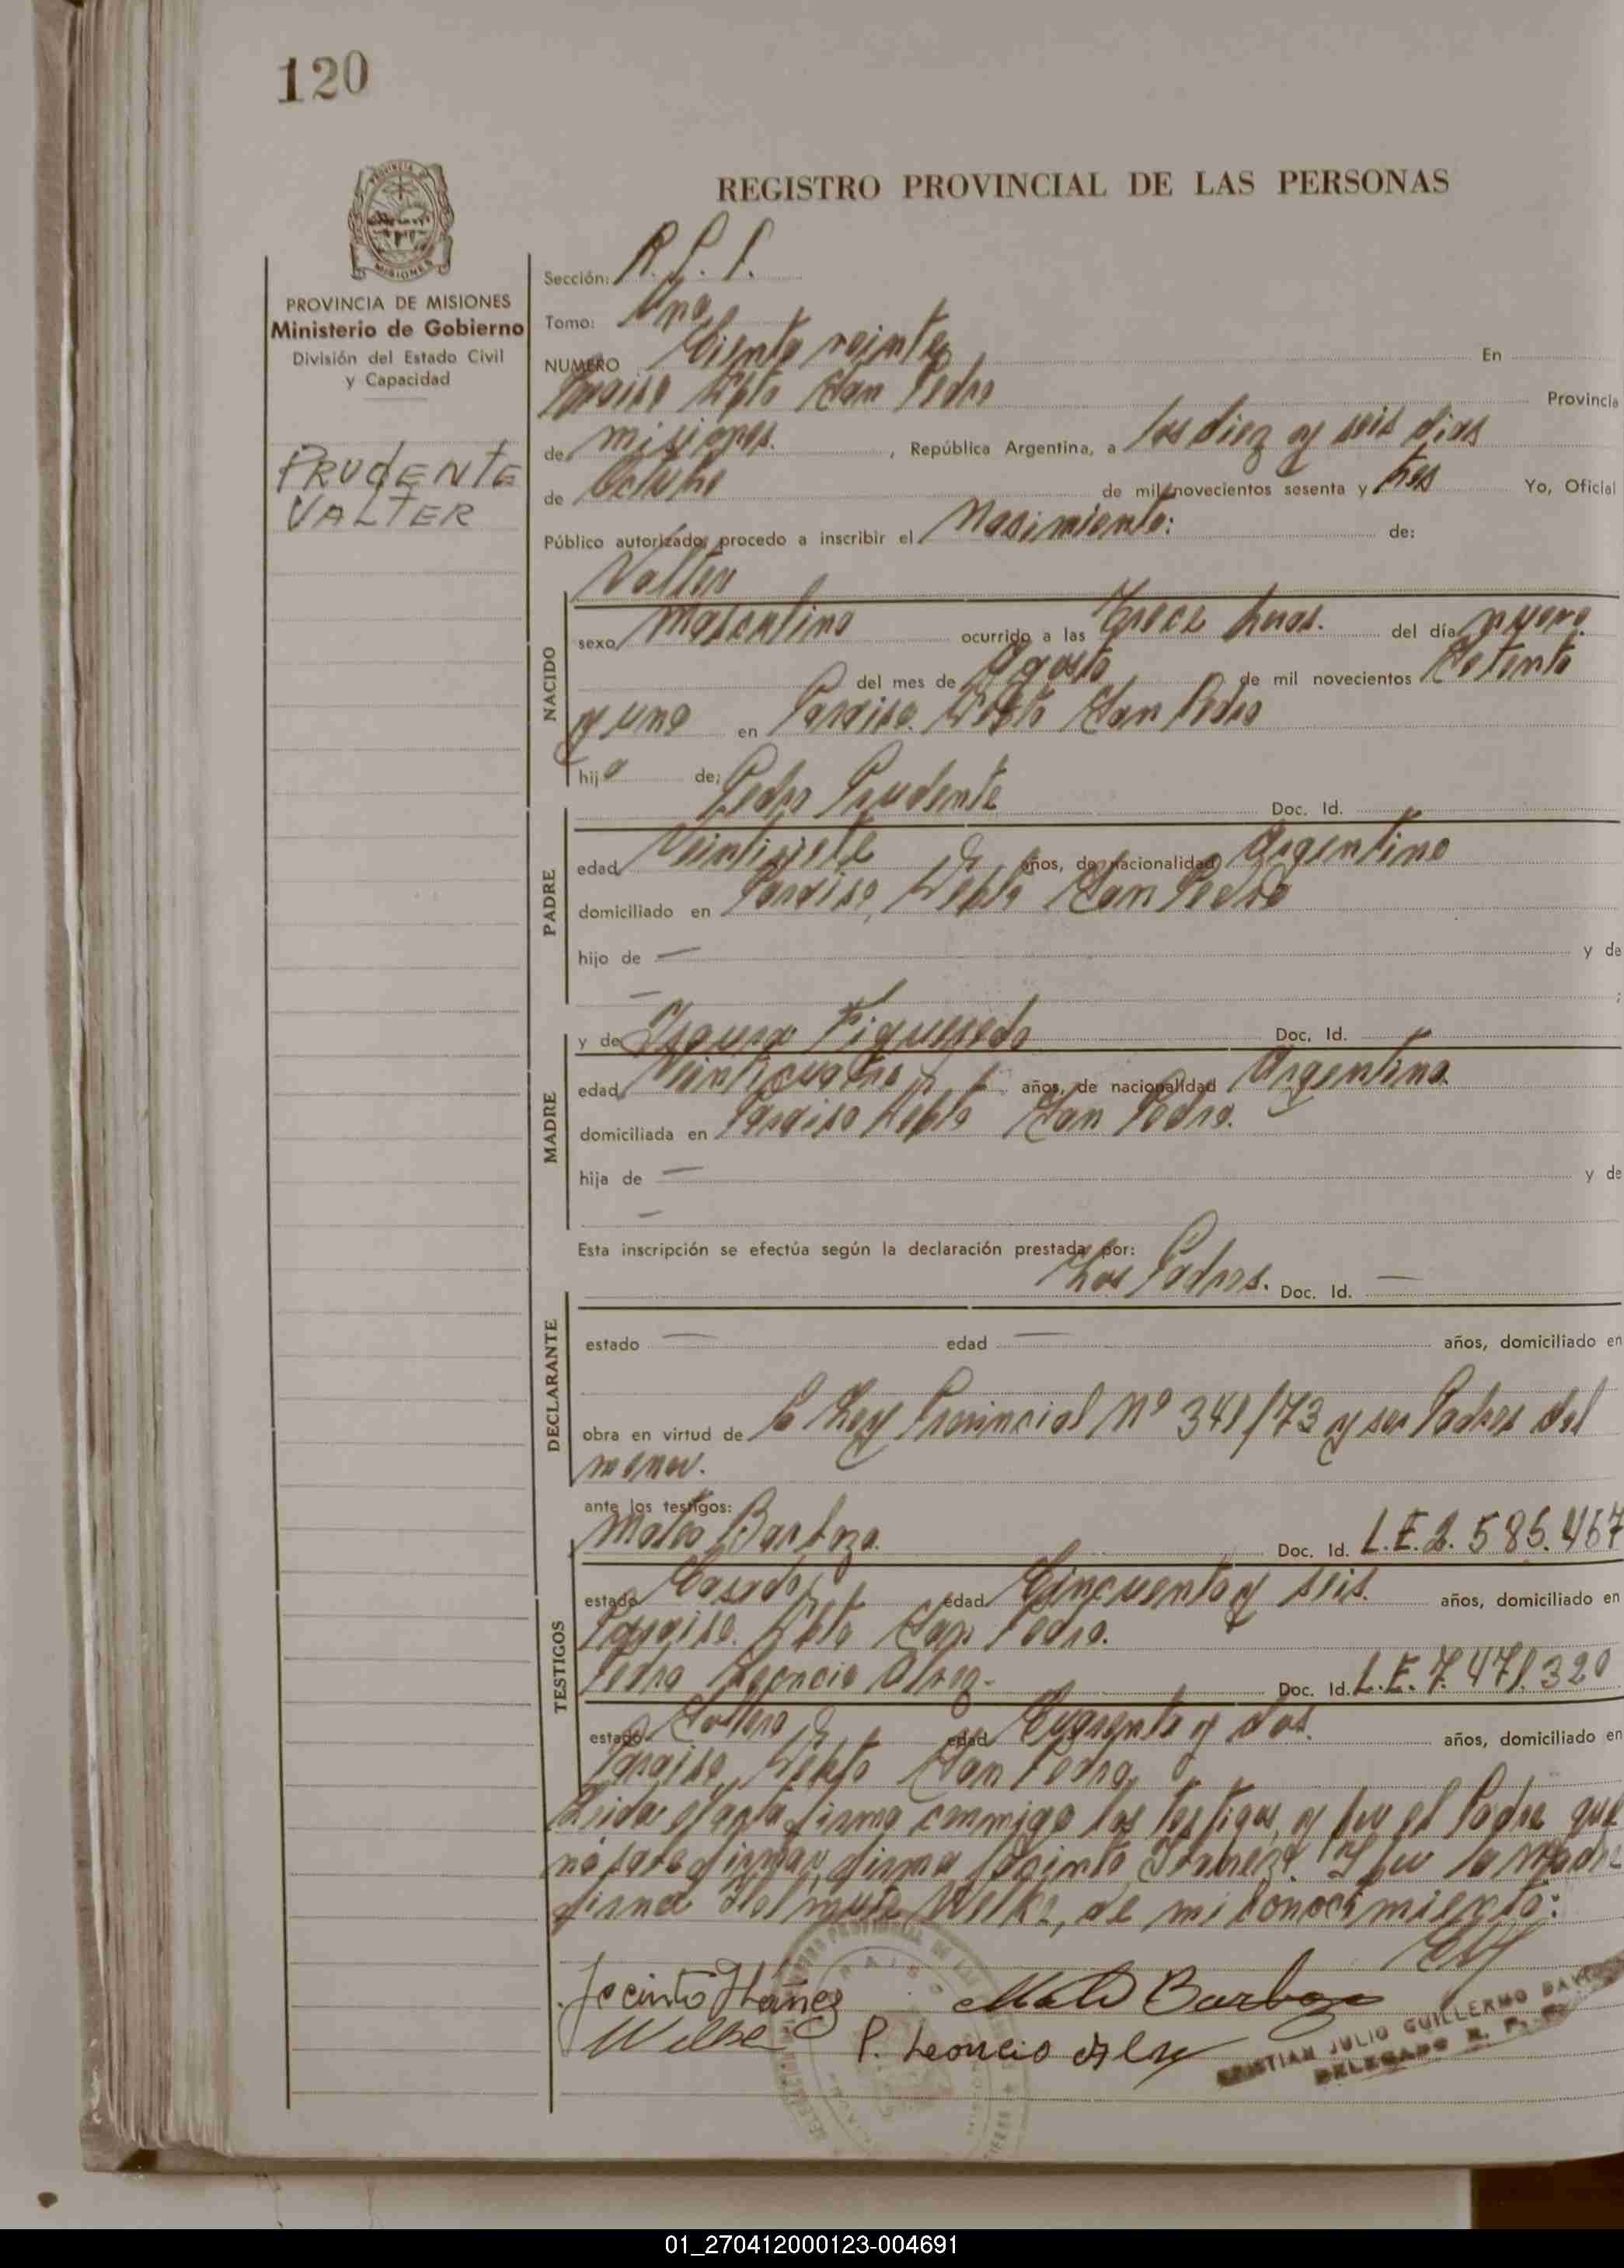 120
REGISTRO PROVINCIAL DE LAS PERSONAS
PROVINCIA DE MISIONES
Ministerio de Gobierno
División del Estado Civil
y Capacidad
PRUDENTE
VALTER
Sección: R. P. P.
Tomo: Uno
NUMERO Ciento veinte En
Paraiso Dpto San Pedro Provincia
de misiones. , República Argentina, a los diez y seis dias
de Octubre de mil novecientos sesenta y tres Yo, Oficial
Público autorizado, procedo a inscribir el Nasimiento: de:
Valter
NACIDO
sexo Masculino ocurrido a las Trece horas. del día nueve
del mes de Agosto de mil novecientos Setenta
y uno en Paraiso. Dpto San Pedro
hijo de: Pedro Prudente Doc. Id.
PADRE
edad Veintisiete años, de nacionalidad Argentino
domiciliado en Paraiso, Dpto San Pedro
hijo de — y de
— ;
MADRE
y de Figueredo Doc. Id. —
edad Veinticuatro años, de nacionalidad Argentina
domiciliada en Paraiso Dpto San Pedro.
hija de — y de
—
Esta inscripción se efectúa según la declaración prestada por:
Los Padres. Doc. Id. —
DECLARANTE
estado — edad — años, domiciliado en
obra en virtud de la Ley Provincial Nº 341/73 y ser Padres del
menor.
ante los testigos:
TESTIGOS
Mateo Barboza. Doc. Id. L.E. 2.585.467
estado Casado edad Cincuenta y seis. años, domiciliado en
Paraiso. Dpto San Pedro.
Pedro Leoncio Alvez- Doc. Id. L.E. 7.471.320
estado Soltero edad Cuarenta y dos. años, domiciliado en
Paraiso, Dpto San Pedro,
Leida el acta firma conmigo los testigos, y por el Padre que
no sabe firmar, firma Jacinto Y por la Madre
firma Welke, de mi Conocimiento:
Jacinto Ibáñez Mateo Barboza
Welke P. Leoncio Alvez
CRISTIAN JULIO GUILLERMO
DELEGADO R. P. P.
01_270412000123-004691